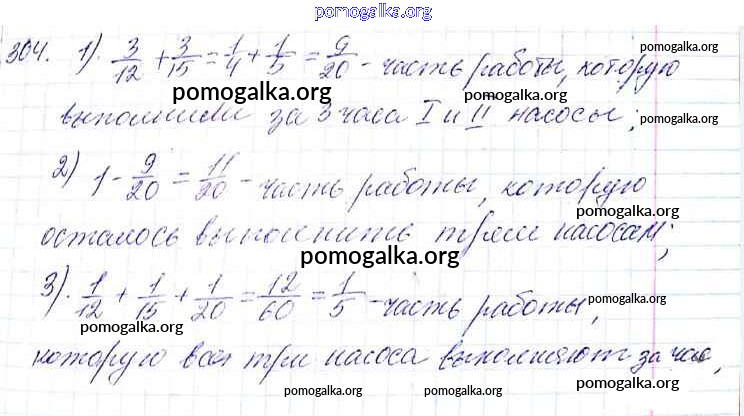 pomogalka.org
304. 1). 3/12 + 3/15 = 1/4 + 1/5 = 9/20 - часть работы, которую
pomogalka.org
pomogalka.org
выполнили за 3 часа I и II насосы;
pomogalka.org
2) 1 - 9/20 = 11/20 - часть работы, которую
pomogalka.org
pomogalka.org
осталось выполнить трём насосам;
pomogalka.org
3). 1/12 + 1/15 + 1/20 = 12/60 = 1/5 - часть работы,
pomogalka.org
pomogalka.org
pomogalka.org
которую все три насоса выполняют за час,
pomogalka.org
pomogalka.org
pomogalka.org